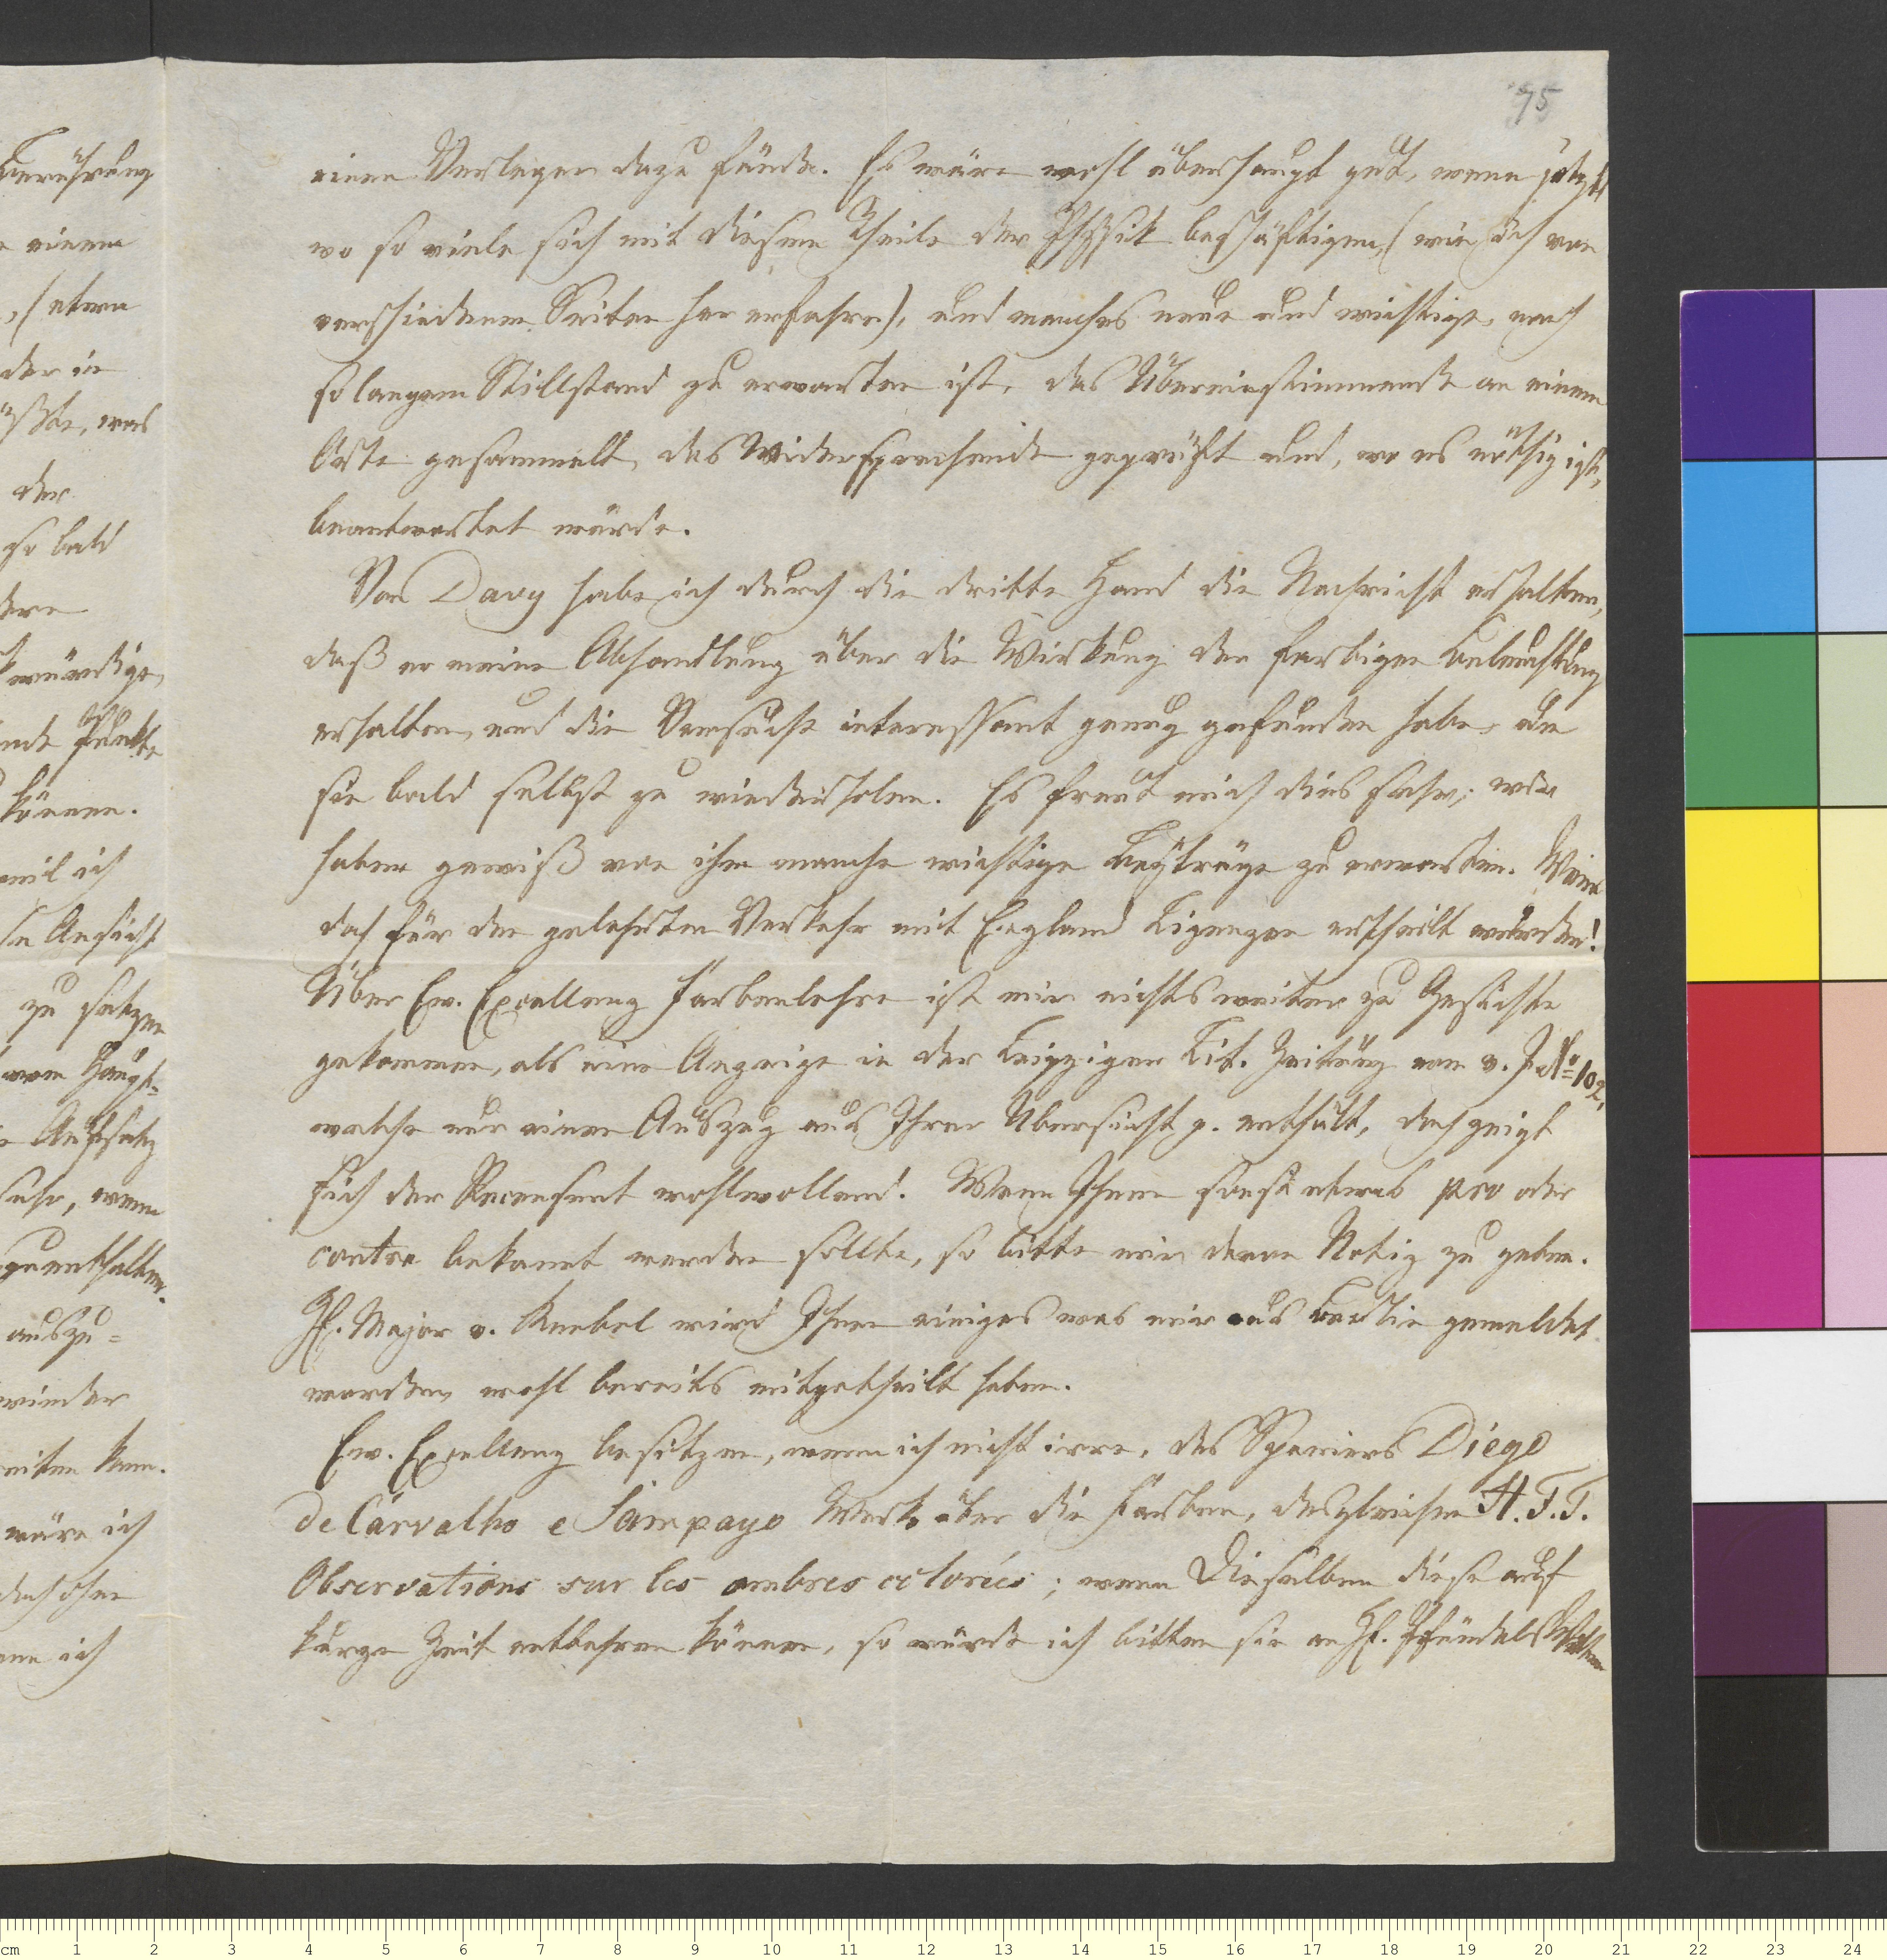 75
einen Verleger dazu fände. Es wäre wohl überhaupt gut, wenn jetzt,
wo so viele sich mit diesem Theile der Physik beschäftigen, (wie ich von
verschiedenen Seiten her erfahre), und manches neue und wichtige, nach
so langem Stillstand zu erwarten ist, das Übereinstimmende an einem
Orte gesammelt, das Widersprechende geprüft und, wo es nöthig ist,
beantwortet würde.
Von Davy habe ich durch die dritte Hand die Nachricht erhalten,
daß er meine Abhandlung über die Wirkung der farbigen Beleuchtung
erhalten, und die Versuche interessant genug gefunden habe, um
sie bald selbst zu wiederholen. Es freut mich dies sehr; wir
haben gewiß von ihm manche wichtige Beyträge zu erwarten. Wenn
doch für den gelehrten Verkehr mit England Licenzen ertheilt würden!
Über Ew. Excellenz Farbenlehre ist mir nichts weiter zu Gesichte
gekommen, als eine Anzeige in der Leipziger Lit. Zeitung vom v. J. No 102,
welche nur einen Auszug aus Ihrer Übersicht p. enthält, doch zeigt
sich der Recensent wohlwollend. Wenn Ihnen sonst etwas pro oder
contra bekannt werden sollte, so bitte mir davon Notiz zu geben.
Hr. Major v. Knebel wird Ihnen einiges was mir aus Berlin gemeldet
worden, wohl bereits mitgetheilt haben.
Ew. Excellenz besitzen, wenn ich nicht irre, des Spaniers Diego
de Carvalho e Sampayo Werk über die Farben, desgleichen H. F. T.
Observations sur les ombres colorées; wenn Dieselben diese auf
kurze Zeit entbehren können, so würde ich bitten sie an Hr.
berührung
einem
, (etwa
der in
müßte, was
der
so bald
dere
kwürdige
Punkte
können.
weil ich
Ansicht
zu setzen
vom Haupt-
Aufsatz
sehr, wenn
zuenthalten.
auszu-
wieder
kann.
wäre ich
doch ohne
ich
cm 1 2 3 4 5 6 7 8 9 10 11 12 13 14 15 16 17 18 19 20 21 22 23 24